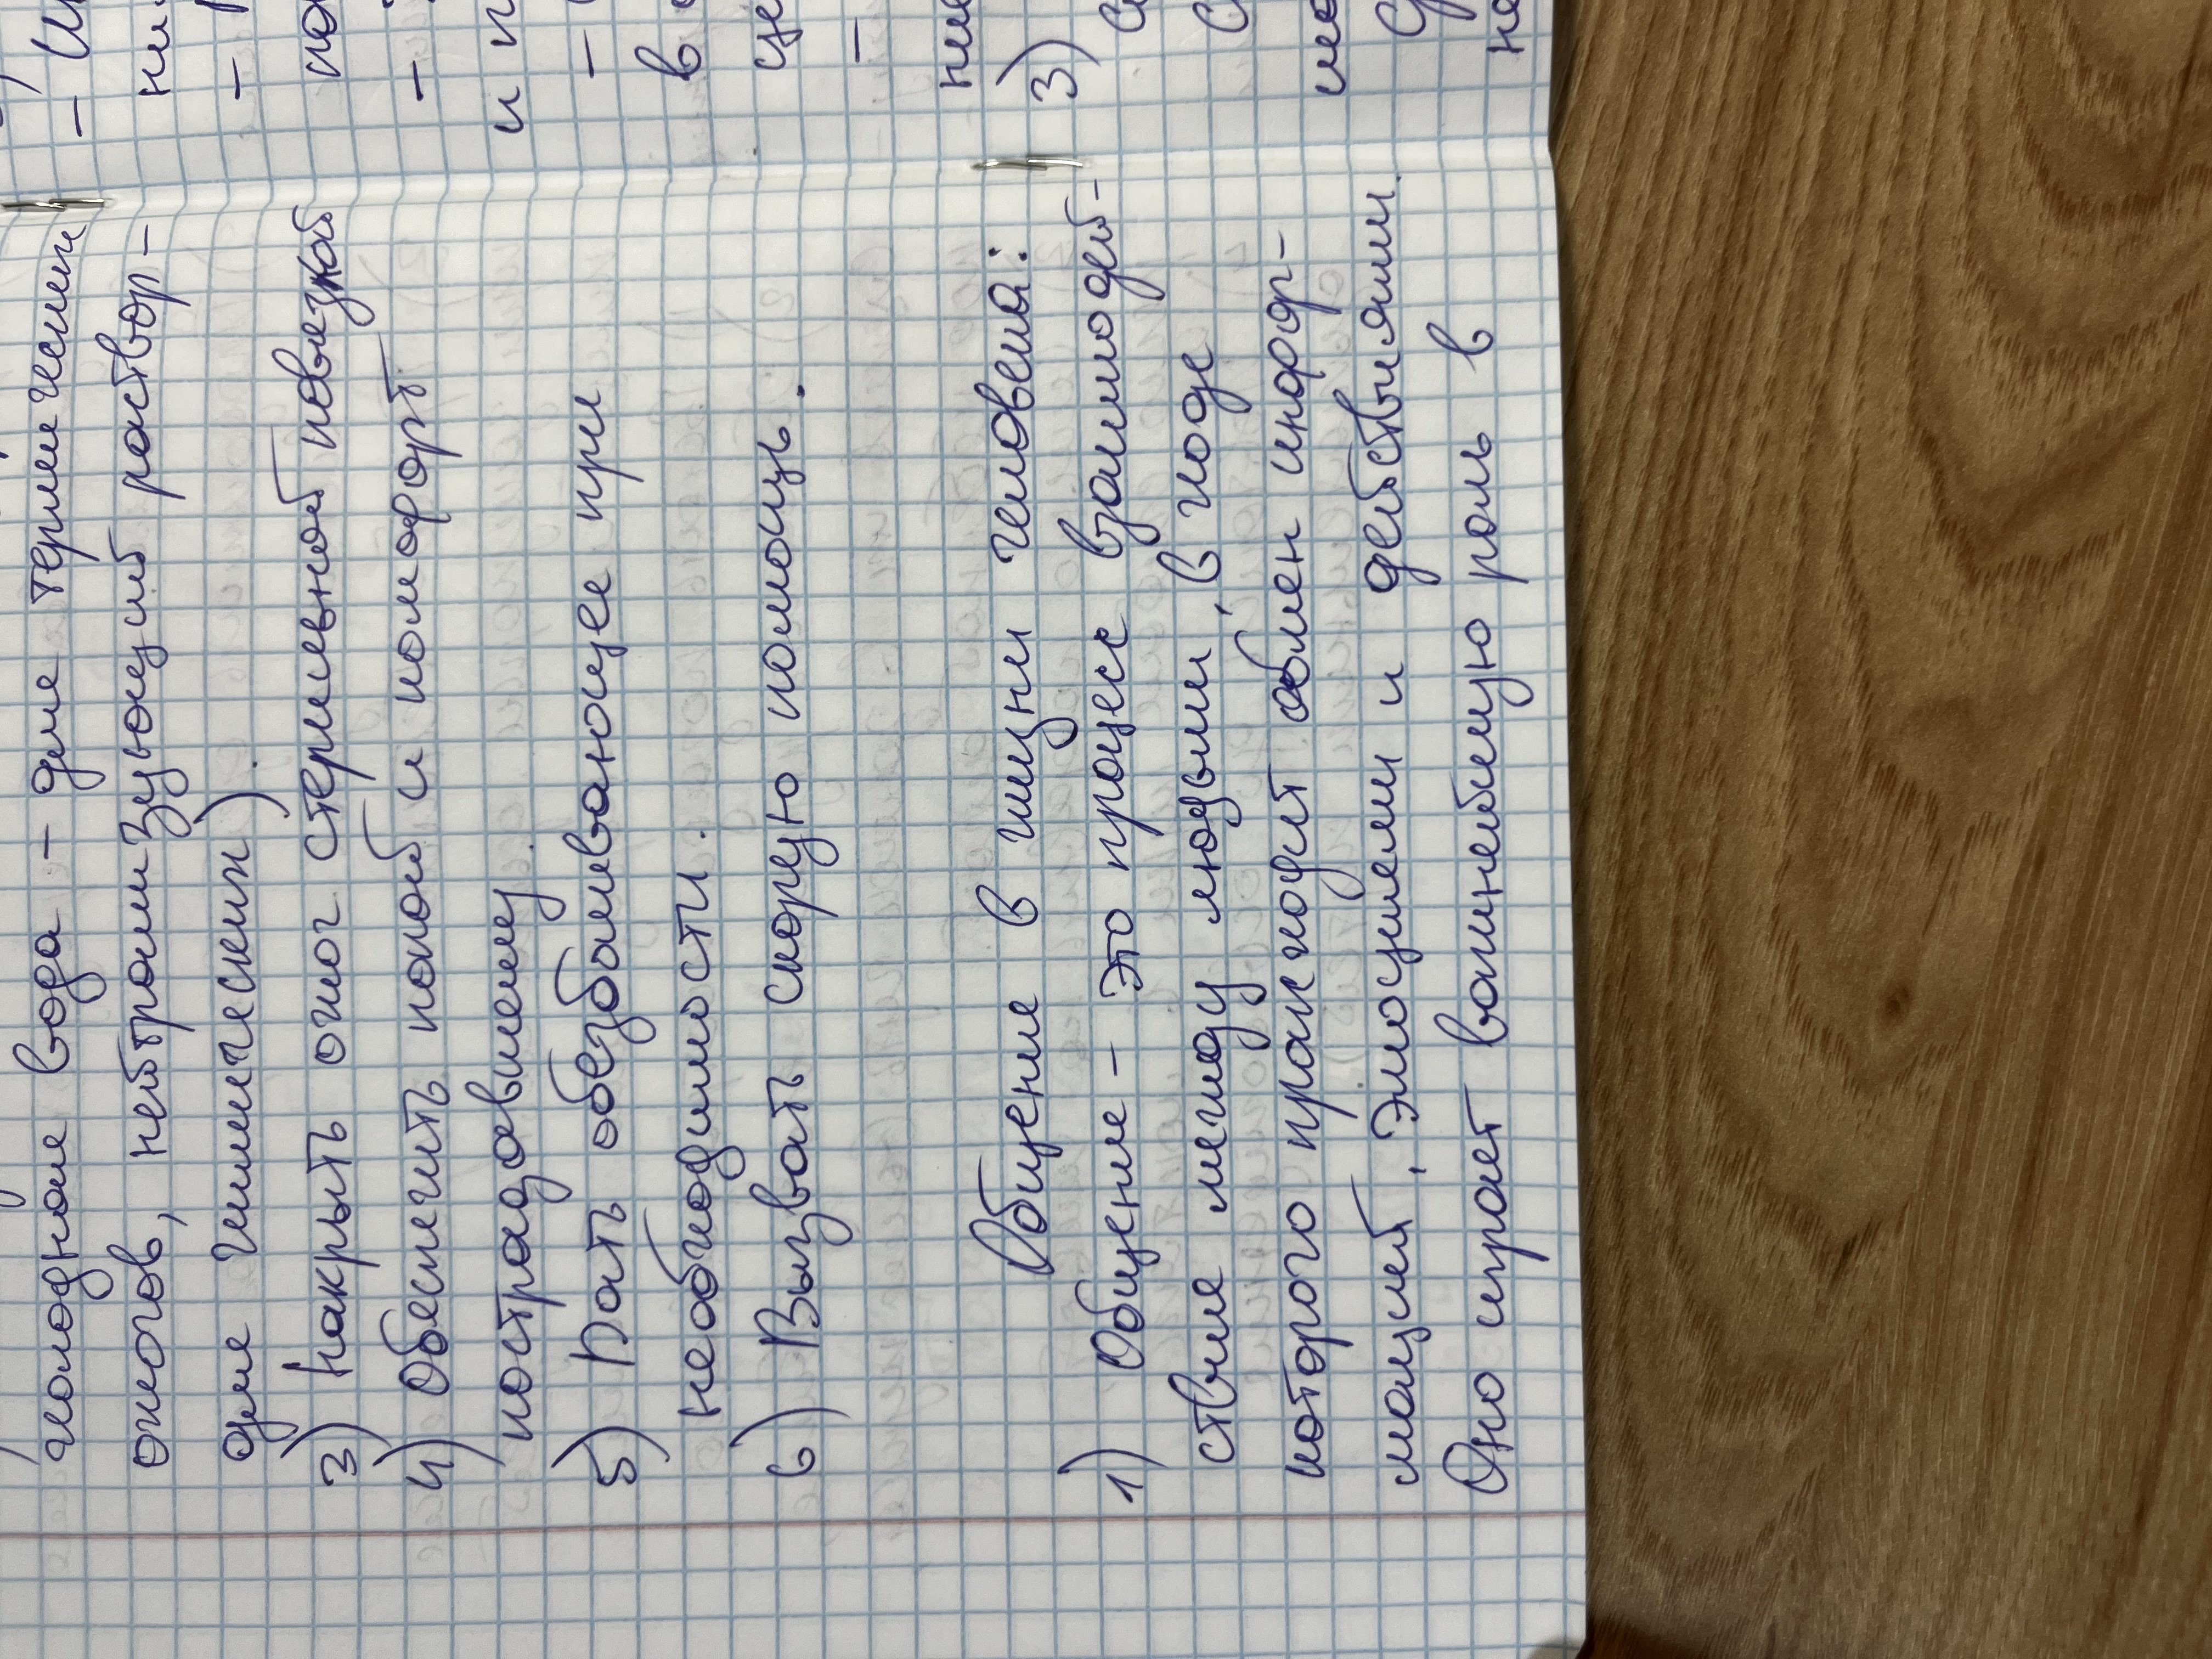 холодная вода – для термических
ожогов, нейтрализующий раствор-
для химических)
3) Накрыть ожог стерильной повязкой.
4) Обеспечить покой и комфорт
пострадавшему.
5) Дать обезболивающее при
необходимости.
6) Вызвать скорую помощь.
Общение в жизни человека:
1) Общение – это процесс взаимодей-
ствия между людьми, в ходе
которого происходит обмен инфор-
мацией, эмоциями и действиями.
Оно играет важнейшую роль в
–
–
–
и п
–
в
–
3)